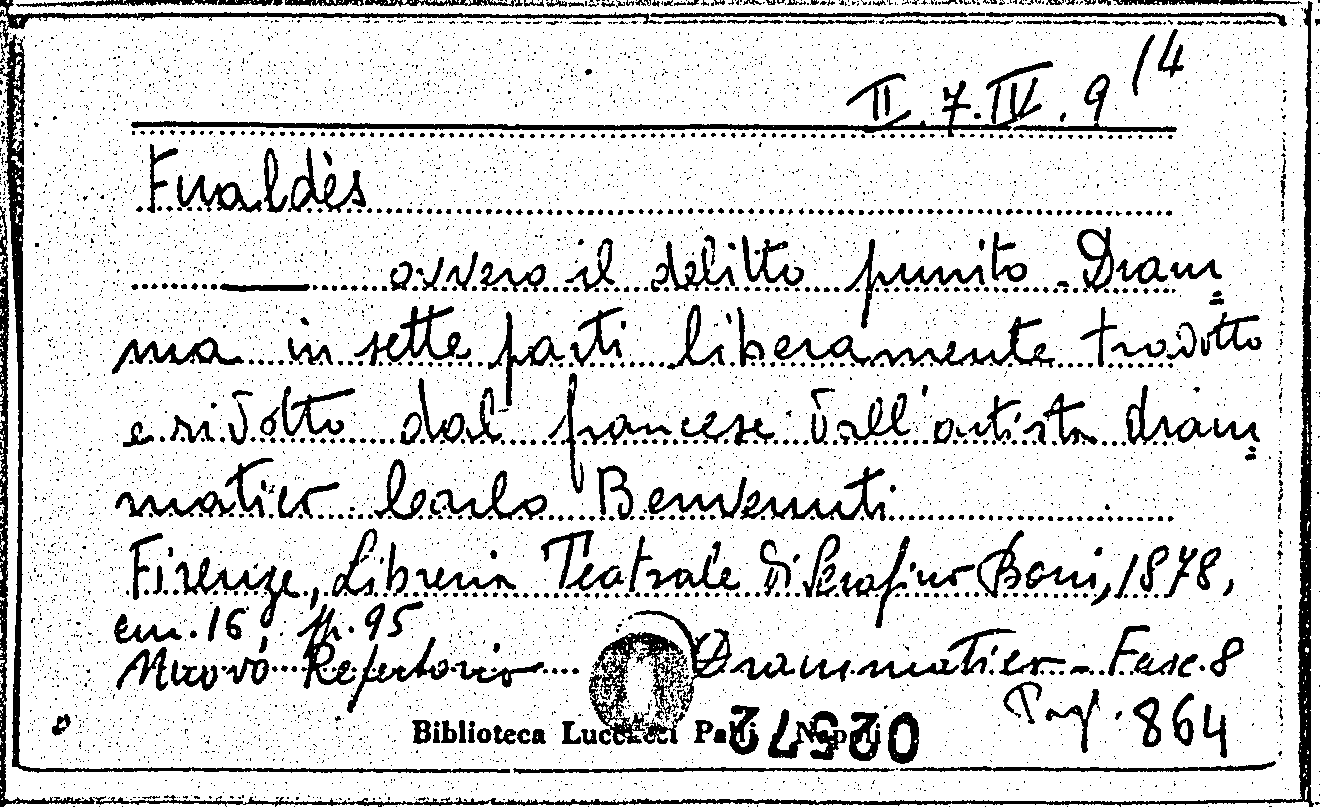 II.7.IV.9 /4
Fualdès
—— ovvero il delitto punito - Dram=
ma in sette parti liberamente tradotto
e ridotto dal francese dall'artista dram=
matico Carlo Benvenuti
Firenze, Libreria Teatrale di Serafino Boni, 1878,
cm. 16, pp. 95
Nuovo Repertorio Drammatico - Fasc. 8
Pag. 864
Biblioteca Lucchesi Palli Napoli